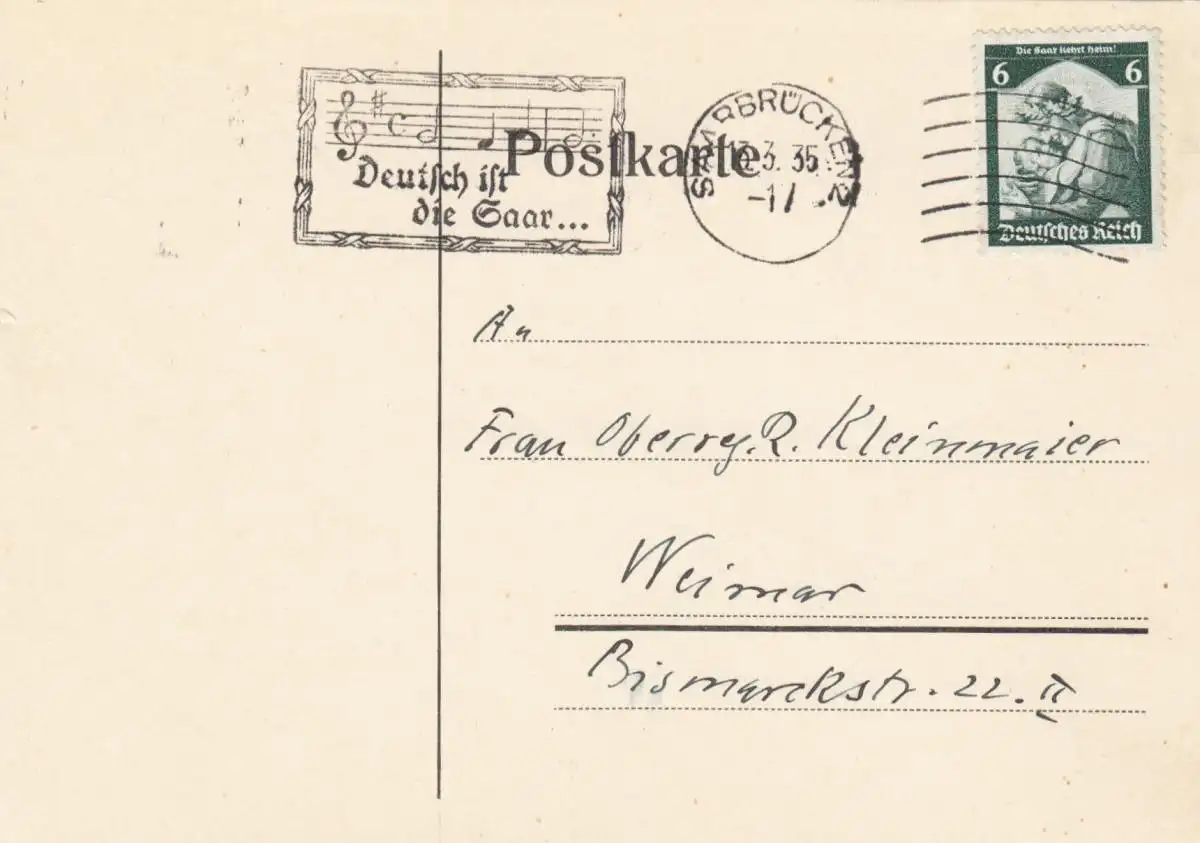 Deutsch ist
die Saar...
Postkarte
SAARBRÜCKEN 2
13.3.35
-17
Die Saar kehrt heim!
6 6
Deutsches Reich
An
Frau Oberreg. R. Kleinmaier
Weimar
Bismarckstr. 22. II